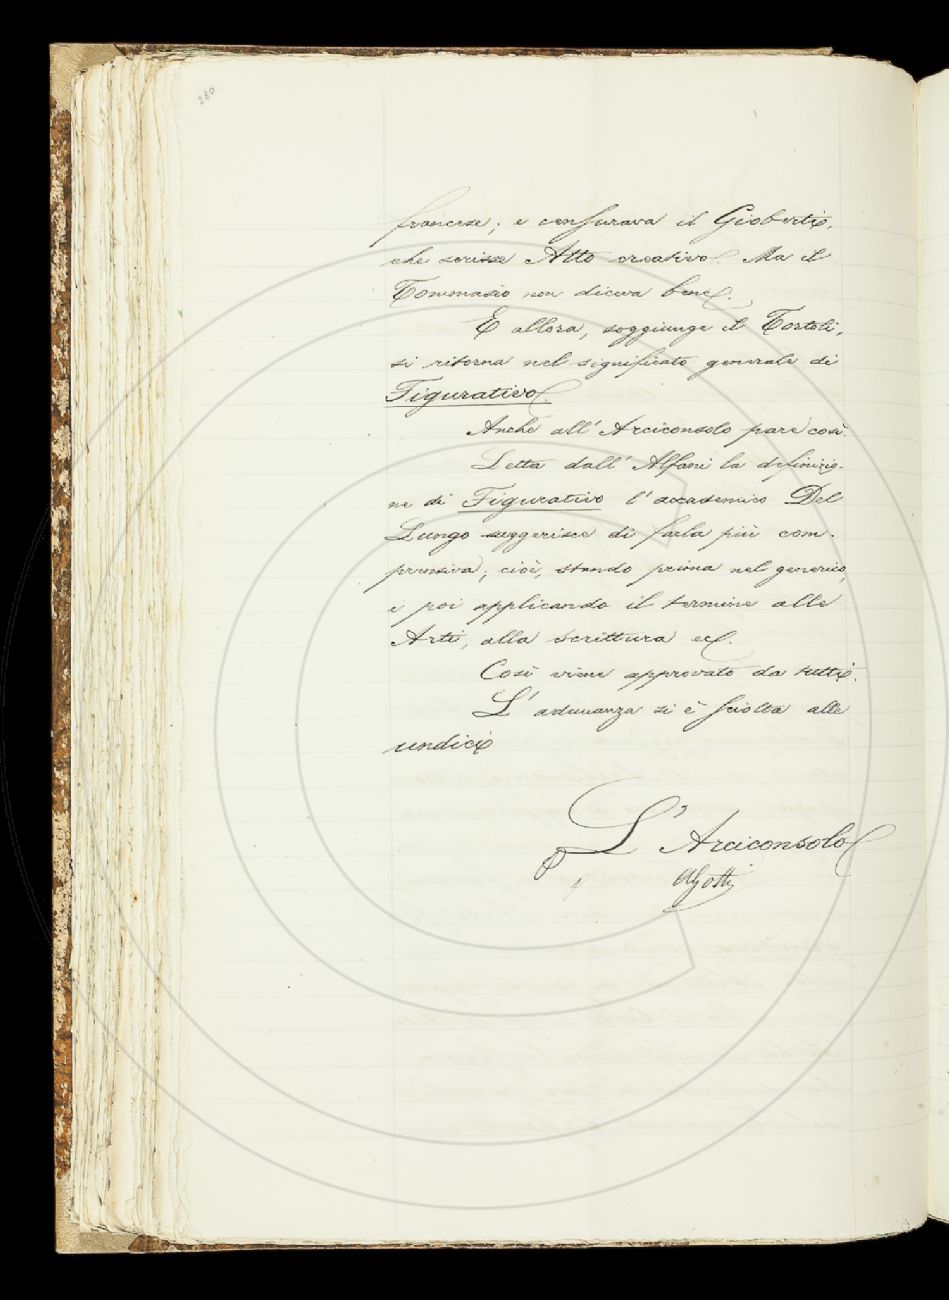 280
francese; e censurava il Gioberti,
che scrisse Atto creativo. Ma il
Tommasèo non diceva bene.
E allora, soggiunge il Tortoli,
si ritorna nel significato generale di
Figurativo.
Anche all'Arciconsolo pare così.
Letta dall'Alfani la definizio-
ne di Figurativo l'accademico Del
Lungo suggerisce di farla più com-
prensiva; cioè, stando prima nel generico,
e poi applicando il termine alle
Arti, alla scrittura ec.
Così viene approvato da tutti.
L'adunanza si è sciolta alle
undici
L'Arciconsolo
AGotti